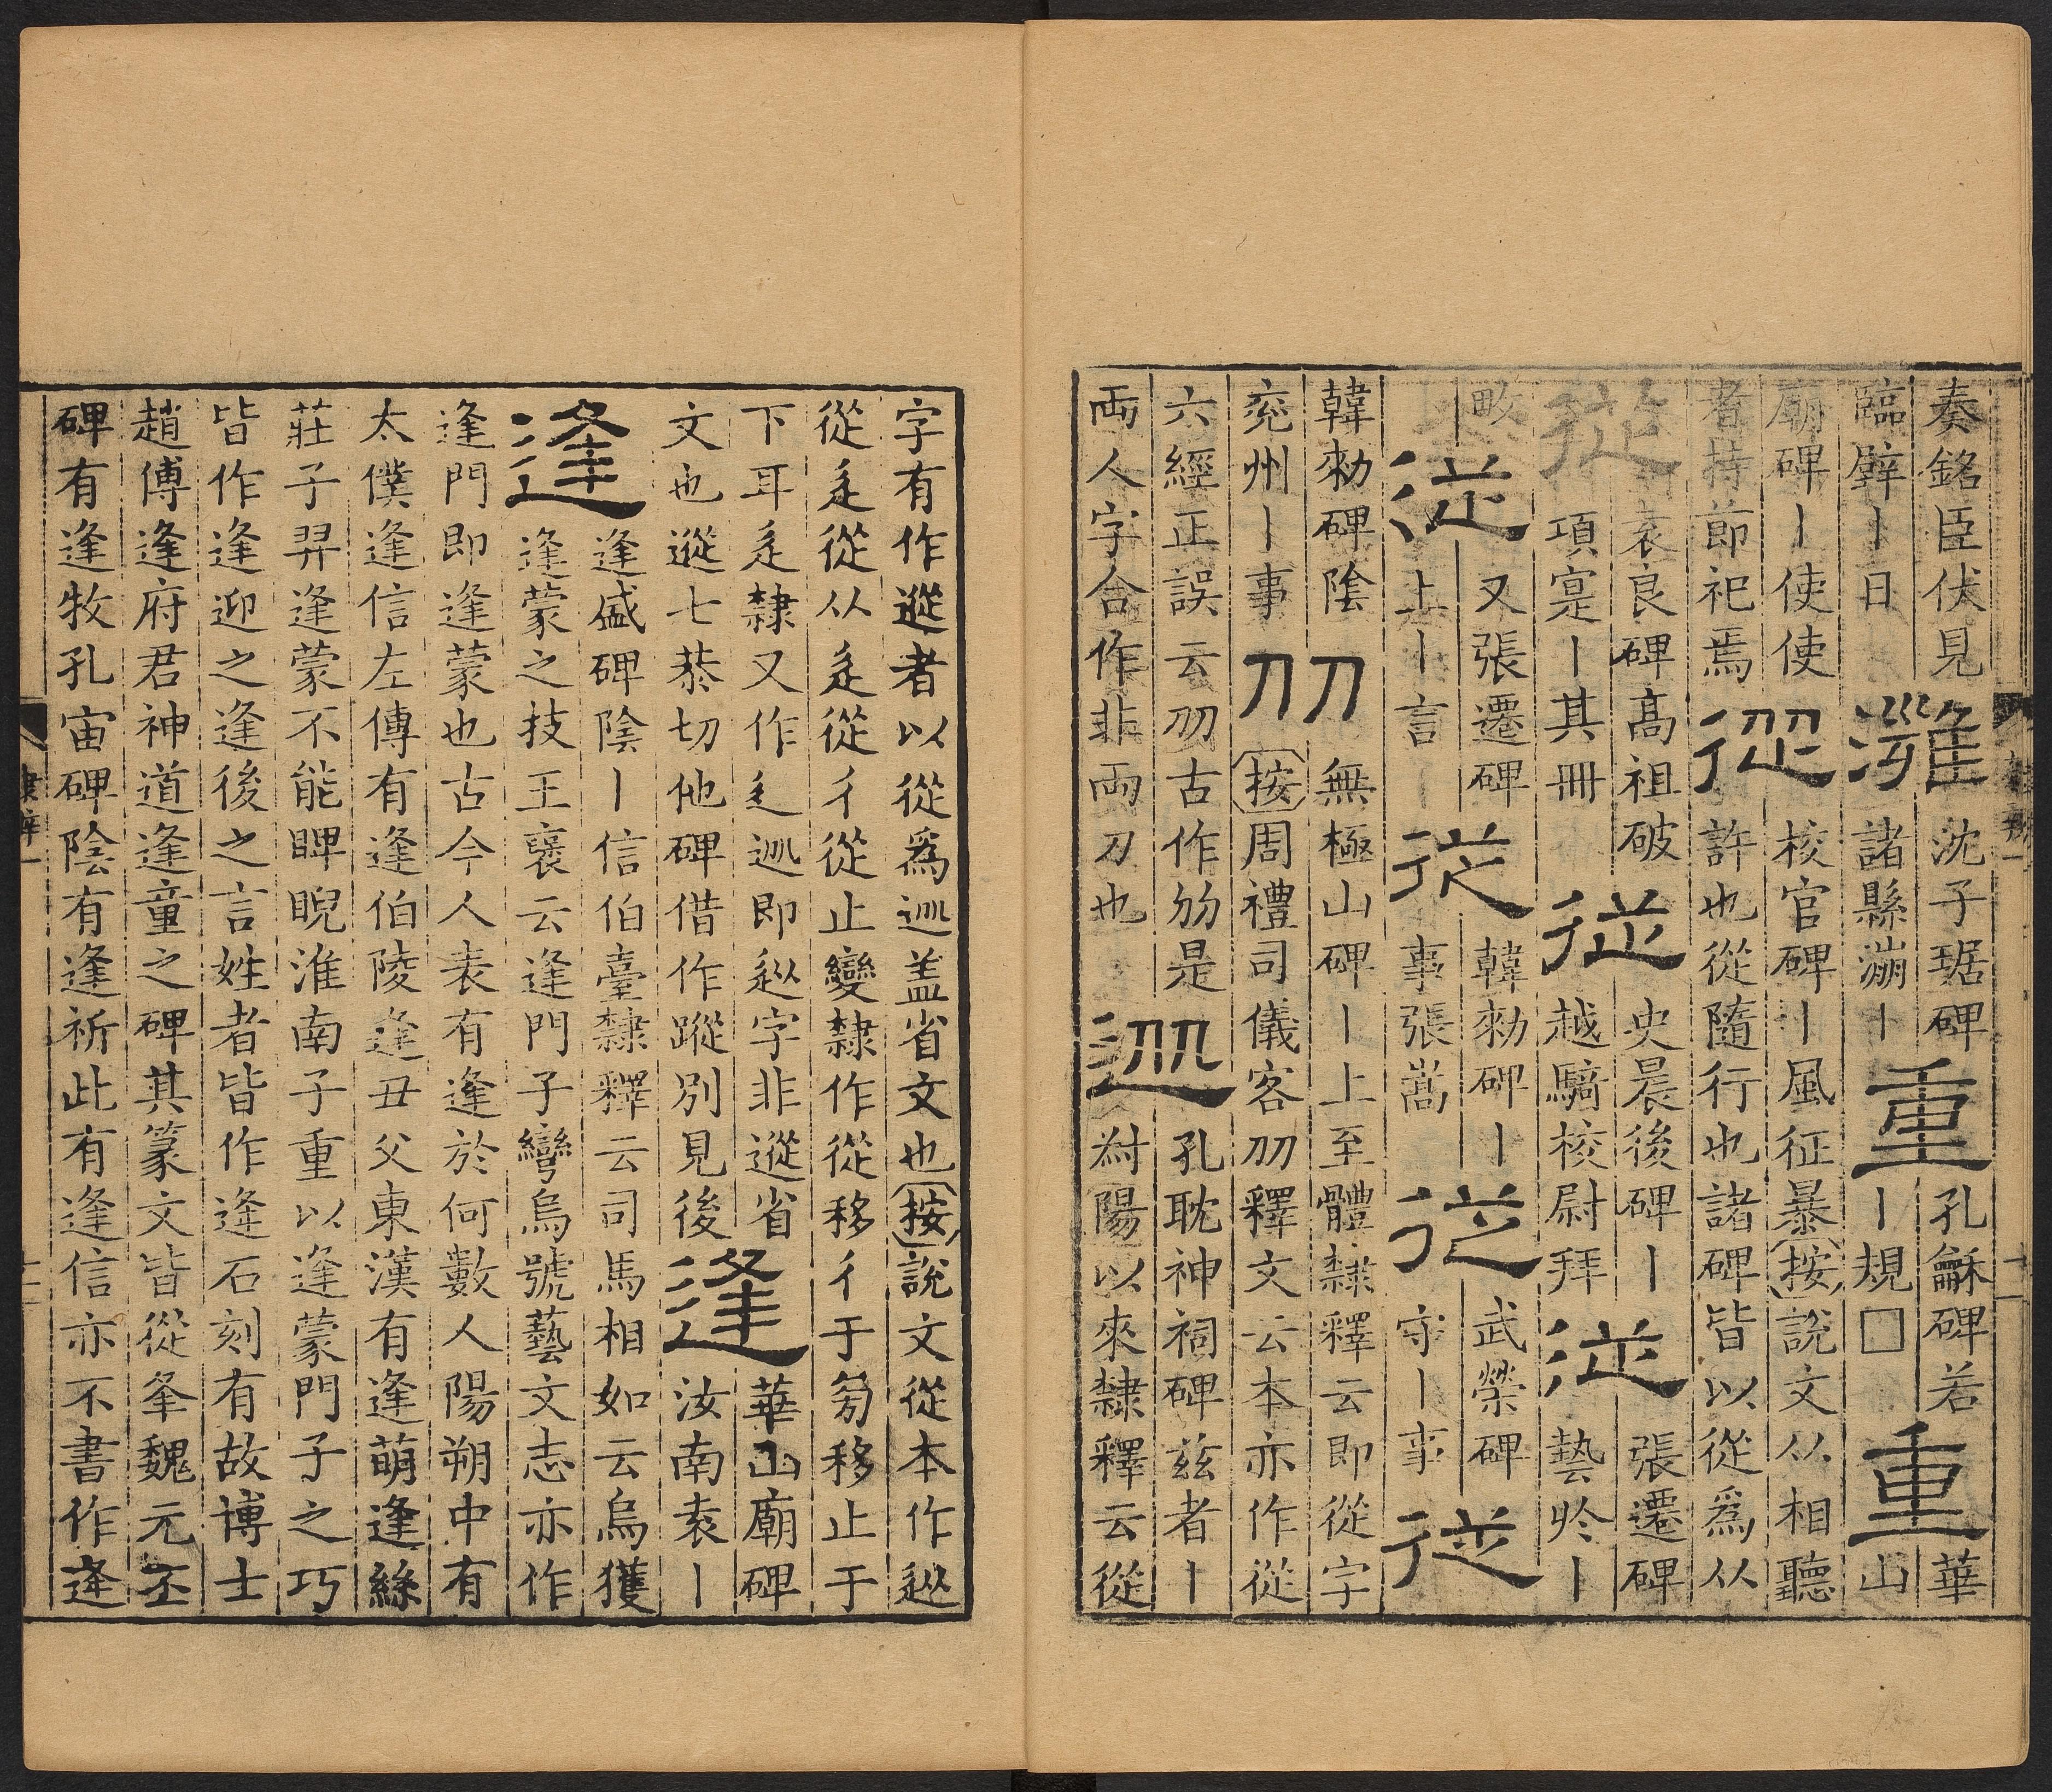 奏銘臣伏見雝沈子琚碑重孔龢碑若華
臨辟丨日灉諸縣漰丨重丨規□重山
廟碑丨使使校官碑丨風征暴按說文从相聽
者持節祀焉從許也從隨行也諸碑皆以從爲从
從袁良碑高祖破從史晨後碑丨從張遷碑
項寔丨其冊越騎校尉拜藝於丨
畋從又張遷碑從韓勑碑丨從武榮碑從
上丨言丨事張嵩守丨事
韓勑碑陰刀刀無極山碑丨上至體隸釋云即從字
兖州丨事按周禮司儀客刕釋文云本亦作從
六經正誤云刕古作刕是孔耽神祠碑兹者丨
兩人字合作非兩刀也𨑢對陽以來隸釋云從
字有作𨑢者以從爲𨑢盖省文也按說文從本作𨑢
從辵從从辵從彳從止變隸作從移彳于旁移止于
下耳辵隸又作辶𨑢即𨑢字非蹤省華山廟碑
文也蹤七恭切他碑借作蹤別見後逢汝南袁丨
逢逢盛碑陰丨信伯臺隸釋云司馬相如云烏獲
逢蒙之技王襃云逢門子彎烏號藝文志亦作
逢門即逢蒙也古今人表有逢於何數人陽朔中有
太僕逢信左傳有逢伯陵逢丑父東漢有逢萌逢絲
莊子羿逢蒙不能睥睨淮南子重以逢蒙門子之巧
皆作逢迎之逢後之言姓者皆作逄石刻有故博士
趙傅逢府君神道逢童之碑其篆文皆從夆魏元丕
碑有逢牧孔宙碑陰有逢祈此有逢信亦不書作逄